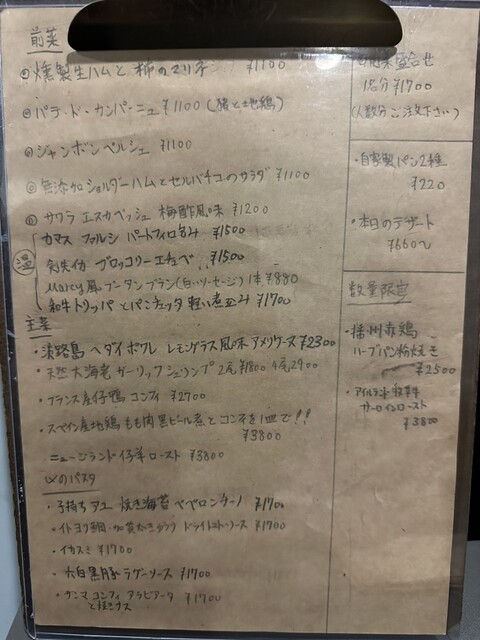 前菜
◎燻製生ハムと柿のマリネ ¥1100
◎パテ・ド・カンパーニュ ¥1100 (猪と土地鶏)
◎ジャンボンペルシュ ¥1100
◎無添加ショルダーハムとセルバチコのサラダ ¥1100
◎サワラ エスカベッシュ 梅酢風味 ¥1200
温
カマス ファルシ パートフィロ包み ¥1500
剣先イカ ブロッコリーエチュベ ¥1500
Marcy風ブーダンブラン(白いソーセージ) 1本 ¥880
和牛トリッパとパンチェッタ軽い煮込み ¥1700
主菜
・淡路島ヘダイポワレ レモングラス風味アメリケーヌ ¥2300
・天然大海老ガーリックシュリンプ 2尾¥1800 4尾2900
・フランス産仔鴨 コンフィ ¥2700
・スペイン産地鶏もも肉黒ビール煮とコンテを1皿で!!
¥3800
ニュージランド仔羊ロースト ¥3800
〆のパスタ
・子持ちアユ 焼き海苔ペペロンチーノ ¥1700
・イトヨリ鯛・加賀太きゅうり ドライトマトソース ¥1700
・イカスミ ¥1700
・六白黒豚ラグーソース ¥1700
・サンマコンフィ アラビアータ
と焼きナス ¥1700
◎前菜盛合せ
1名分 ¥1700
(人数分ご注文下さい)
・自家製パン2種
¥220
・本日のデザート
¥660〜
数量限定
・播州赤鶏
ハーブパン粉焼き
¥2500
・アイルランド牧草牛
サーロインロースト
¥3800